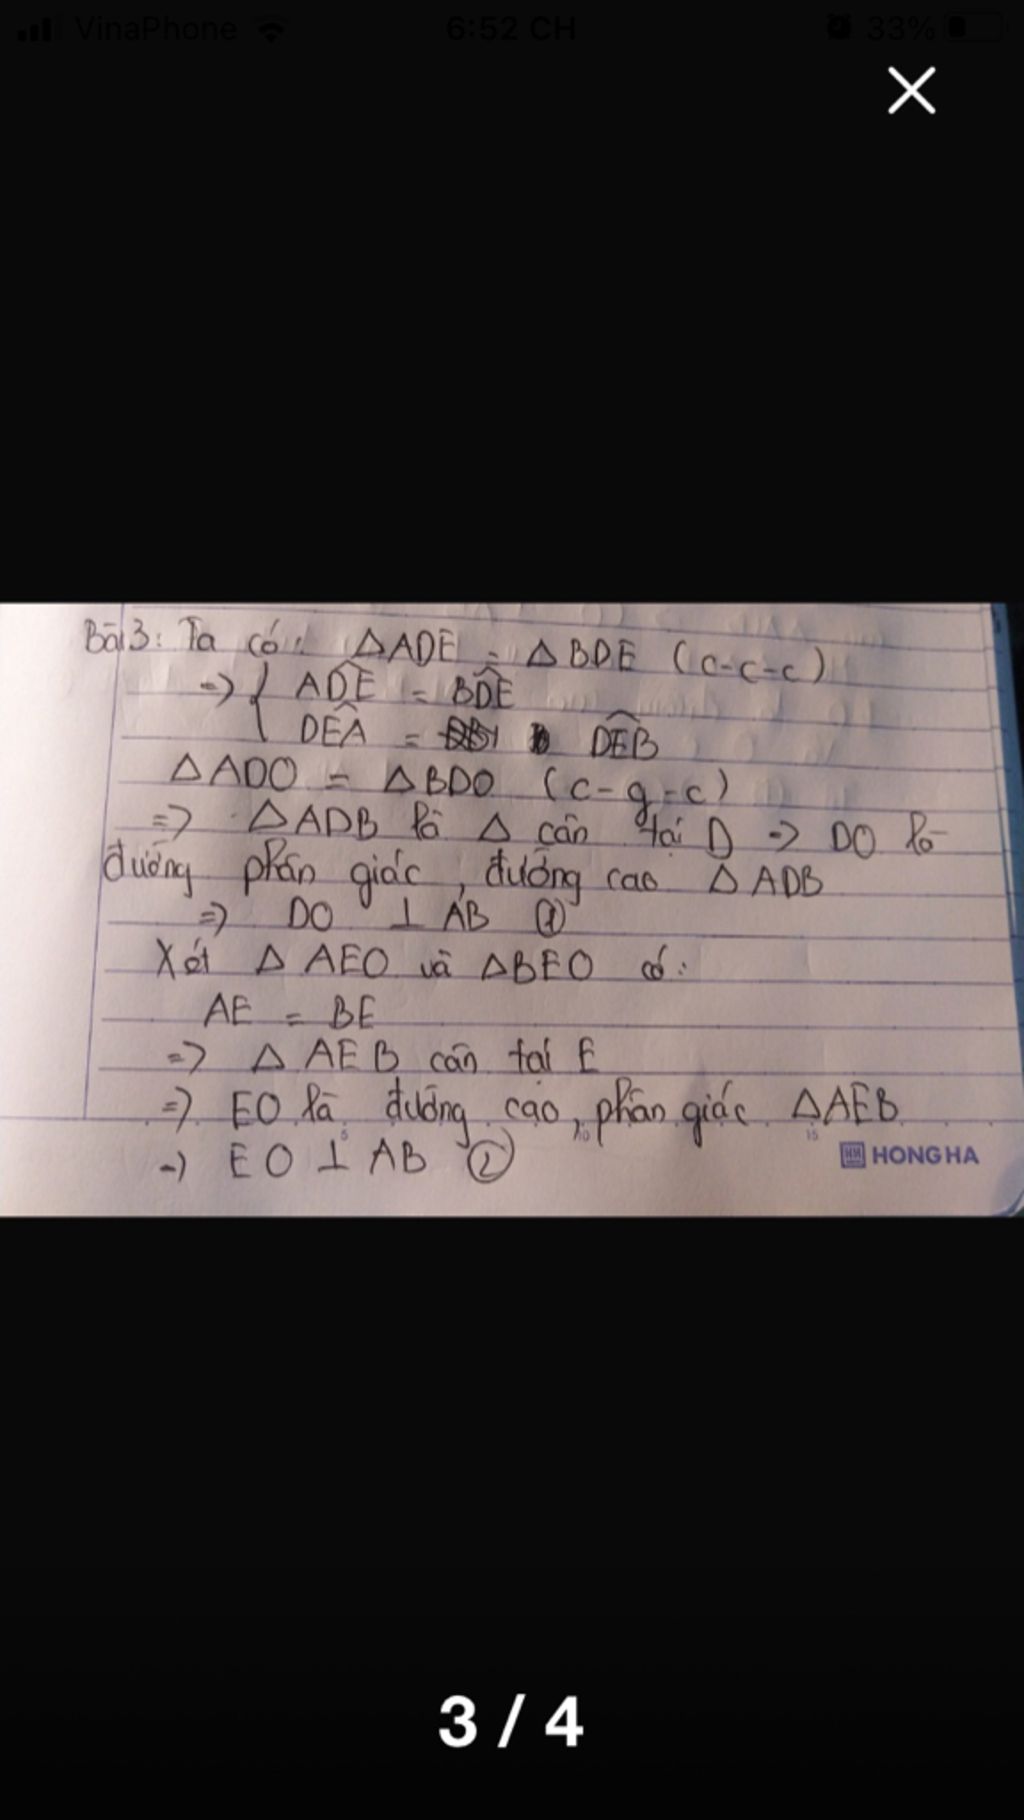 VinaPhone 6:52 CH 33%
Bài 3: Ta có: △ADE = △BDE (c-c-c)
=> { ADE = BDE
DEA = DEB
△ADO = △BDO (c-g-c)
=> △ADB là △ cân tại D => DO là
đường phân giác, đường cao △ADB
=> DO ⊥ AB ①
Xét △AEO và △BEO có:
AE = BE
=> △AEB cân tại E
=> EO là đường cao, phân giác △AEB
5 10 15
=> EO ⊥ AB ②
HONG HA
3 / 4